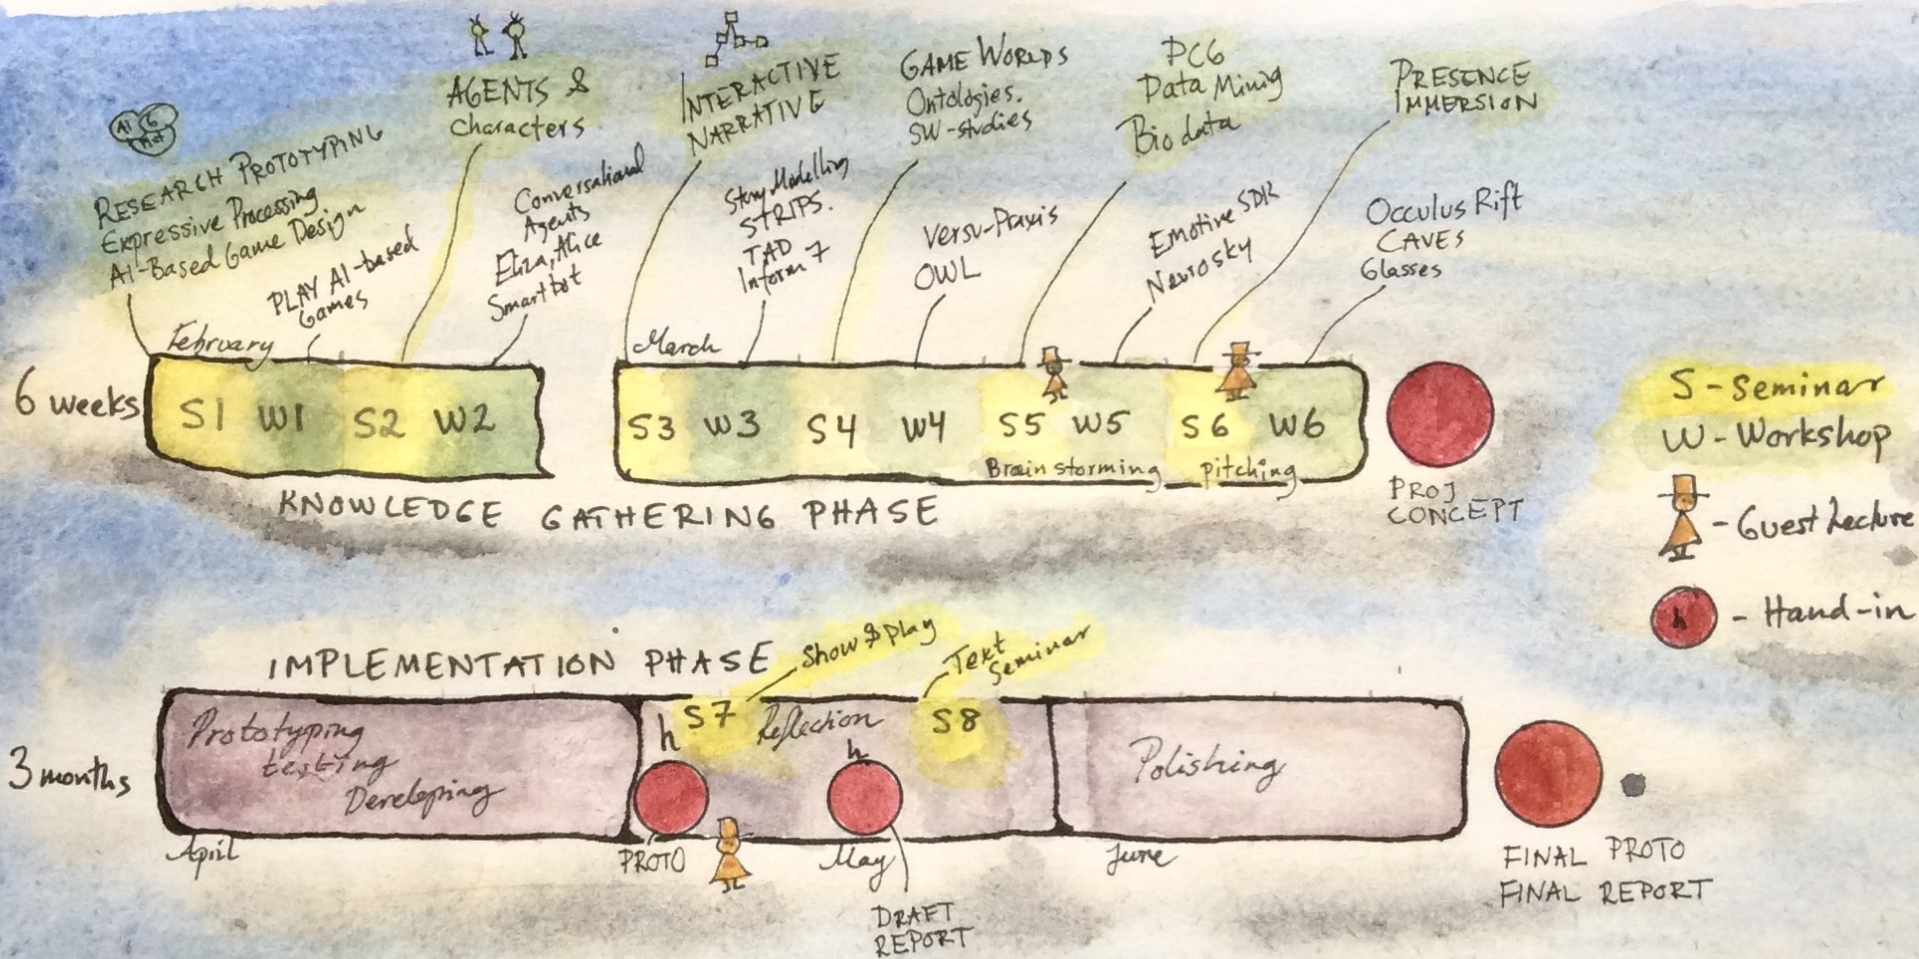 AI G
Plat
RESEARCH PROTOTYPING
Expressive Processing
AI-Based Game Design
PLAY AI-based
Games
AGENTS &
Characters
Conversational
Agents
Eliza, Alice
Smartbot
INTERACTIVE
NARRATIVE
Story Modelling
STRIPS.
TAD
Inform 7
GAME WORLDS
Ontologies.
SW-studies
Versu-Praxis
OWL
PCG
Data Minig
Bio data
Emotive SDK
Neurosky
PRESENCE
IMMERSION
Occulus Rift
CAVES
Glasses
February
March
6 weeks
S1 W1 S2 W2
S3 W3 S4 W4 S5 W5 S6 W6
Brainstorming pitching
KNOWLEDGE GATHERING PHASE
PROJ
CONCEPT
S - Seminar
W - Workshop
- Guest Lecture
h - Hand-in
IMPLEMENTATION PHASE
Show & Play
Text
Seminar
3 months
Prototyping
testing
Developing
h S7 Reflection S8
h
Polishing
April
PROTO
May
June
DRAFT
REPORT
FINAL PROTO
FINAL REPORT